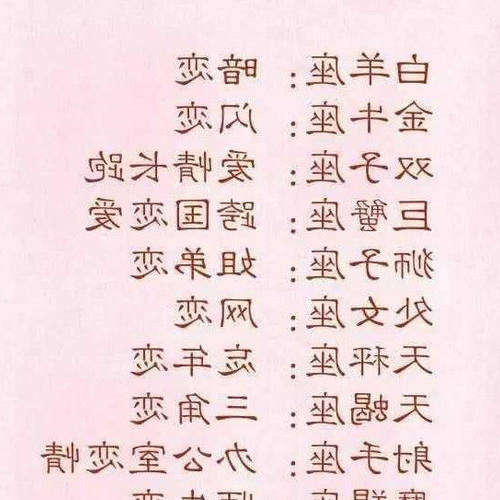 白羊座：暗恋
金牛座：闪恋
双子座：爱情长跑
巨蟹座：跨国恋爱
狮子座：姐弟恋
处女座：网恋
天秤座：忘年恋
天蝎座：三角恋
射手座：办公室恋情